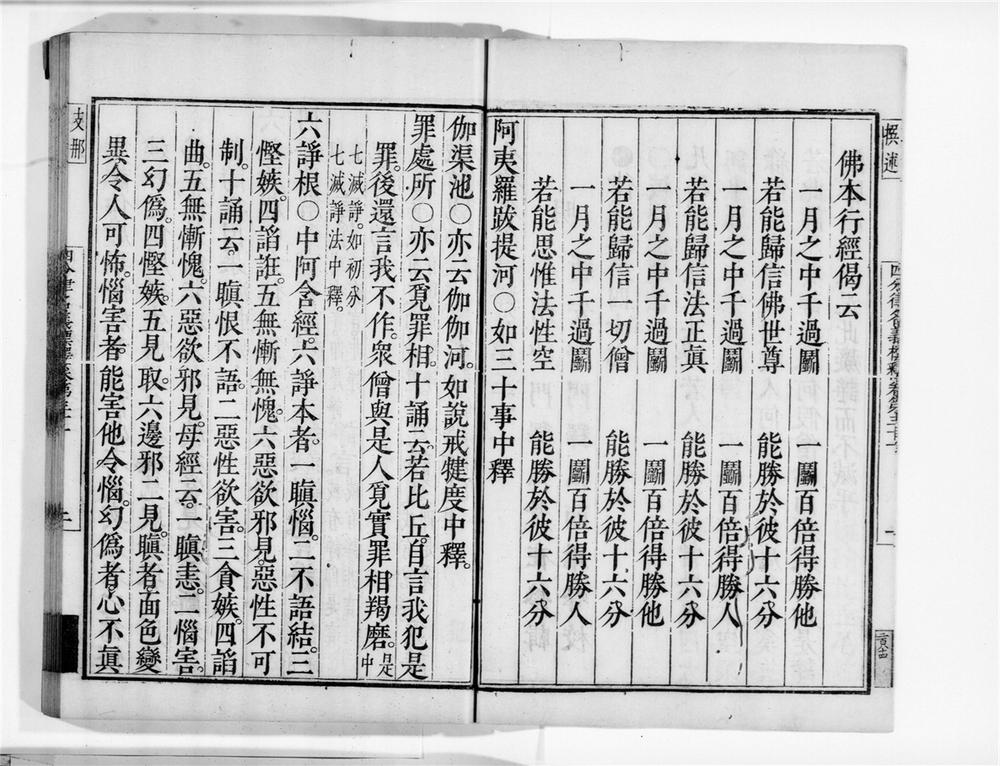 佛本行經偈云
一月之中千過鬭　一鬭百倍得勝他
若能歸信佛世尊　能勝於彼十六分
一月之中千過鬭　一鬭百倍得勝人
若能歸信法正眞　能勝於彼十六分
一月之中千過鬭　一鬭百倍得勝他
若能歸信一切僧　能勝於彼十六分
一月之中千過鬭　一鬭百倍得勝人
若能思惟法性空　能勝於彼十六分
阿夷羅跋提河〇如三十事中釋
伽渠池〇亦云伽伽河。如說戒犍度中釋。
罪處所〇亦云覓罪相。十誦云。若比丘。自言我犯是
罪。後還言我不作。衆僧與是人覓實罪相羯磨。是中
七滅諍。如初分
七滅諍法中釋。
六諍根〇中阿含經。六諍本者。一瞋惱。二不語結。三
慳嫉。四諂誑。五無慚無愧。六惡欲邪見。惡性不可
制。十誦云。一瞋恨不語。二惡性欲害。三貪嫉。四諂
曲。五無慚愧。六惡欲邪見。母經云。一瞋恚。二惱害。
三幻僞。四慳嫉。五見取。六邊邪二見。瞋者。面色變
異。令人可怖。惱害者。能害他令惱。幻僞者。心不眞
支那